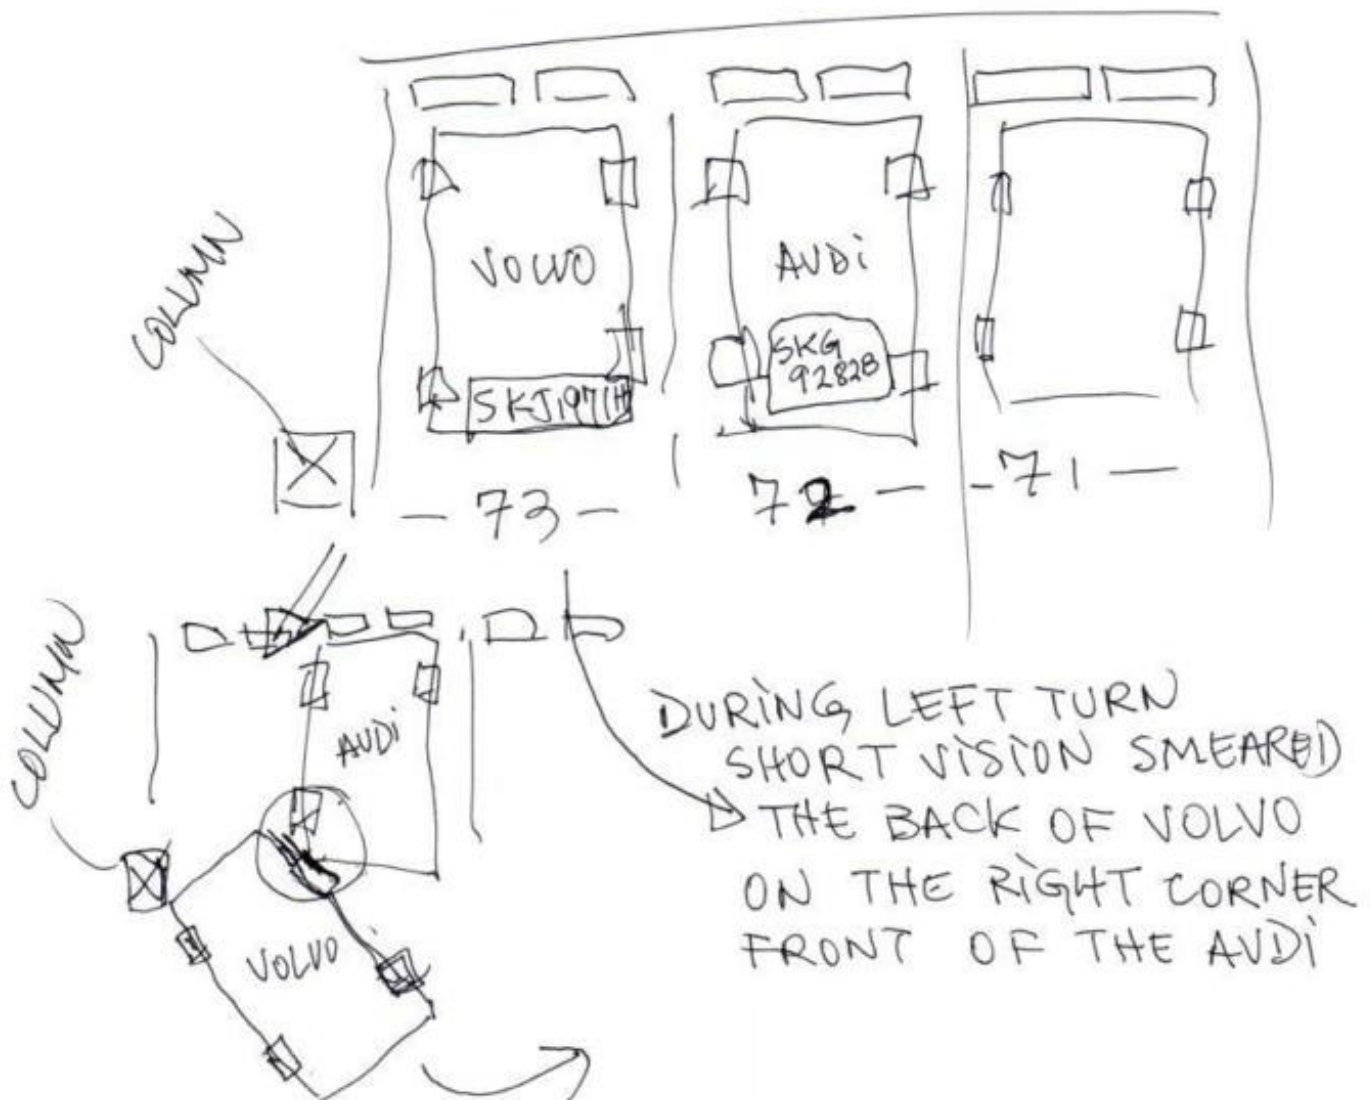 COLUMN
VOLVO
AUDi
SKJ1971H
SKG
9282B
- 73 -
72 -
- 71 -
COLUMN
AUDi
VOLVO
DURiNG LEFT TURN
SHORT ViSiON SMEARED
THE BACK OF VOLVO
ON THE RiGHT CORNER
FRONT OF THE AUDi